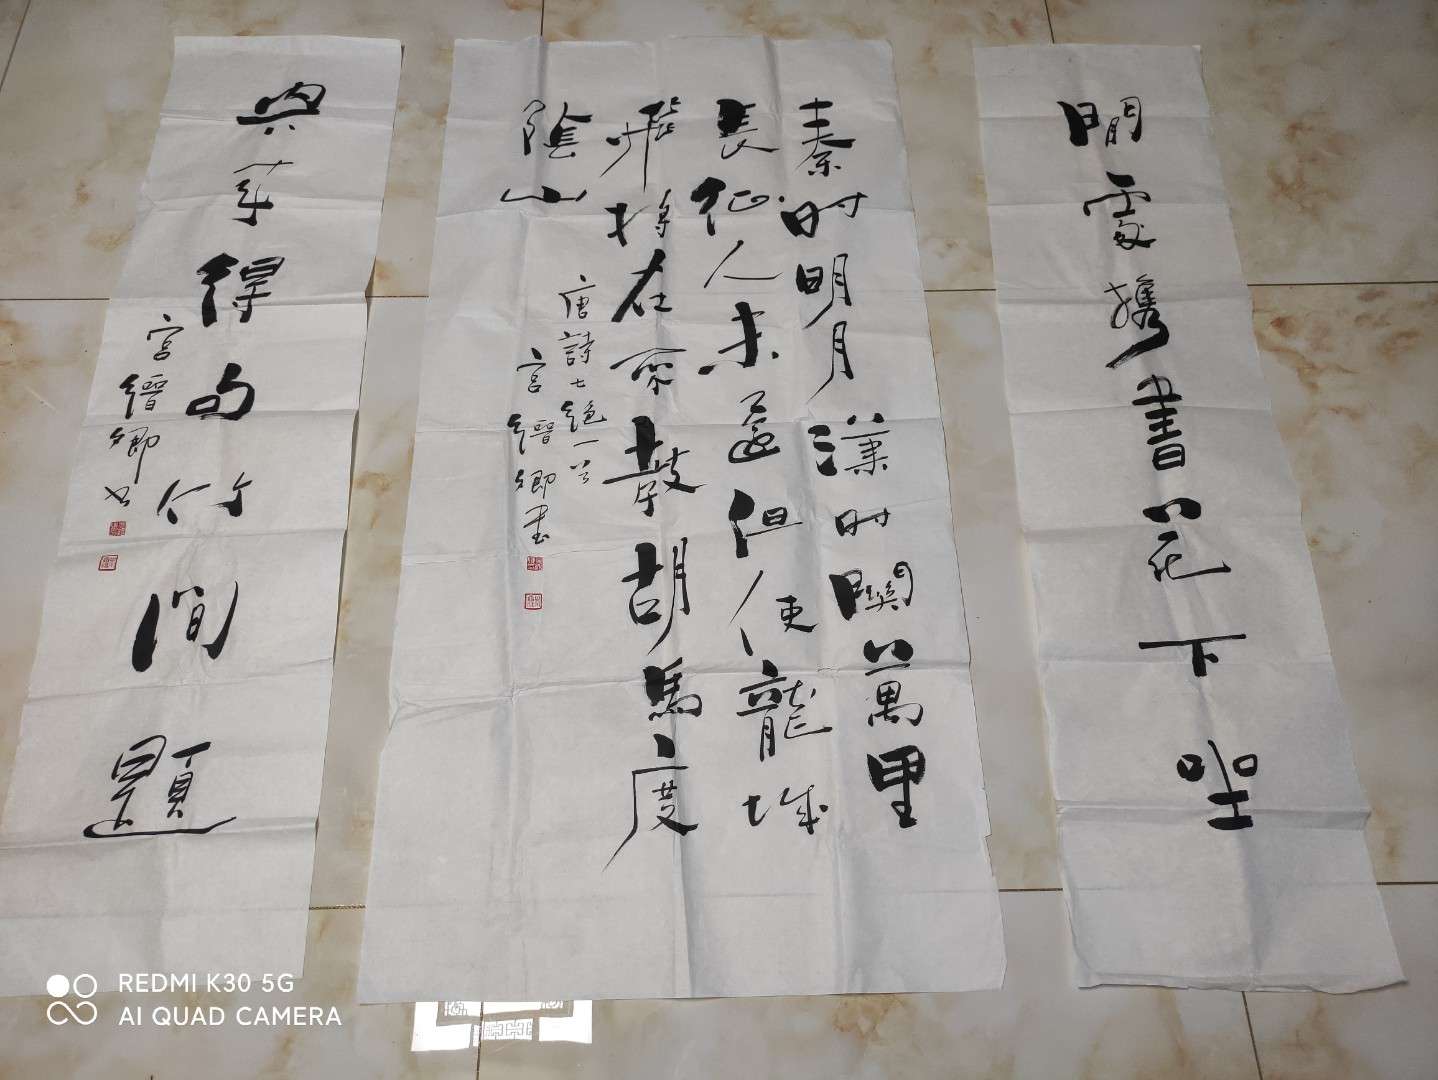 閒處携書花下坐
秦时明月漢时関萬里
長征人未還但使龍城
飛將在不教胡馬度
陰山
唐詩七絕一首
宮縉卿書
興来得句竹間題
宮縉卿书
REDMI K30 5G
AI QUAD CAMERA